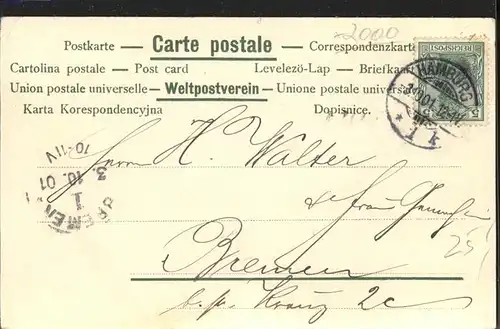 2000
Postkarte — Carte postale — Correspondenzkarte
Cartolina postale — Post card Levelező-Lap — Briefkaart
Union postale universelle — Weltpostverein — Unione postale universale
Karta Korespondencyjna Dopisnice.
REICHSPOST
5
HAMBURG
* 1 k
Herrn H. Walter
BREMEN
1
3. 10. 01
10-11V
& Frau
25
Bremen
Kreuz 2c